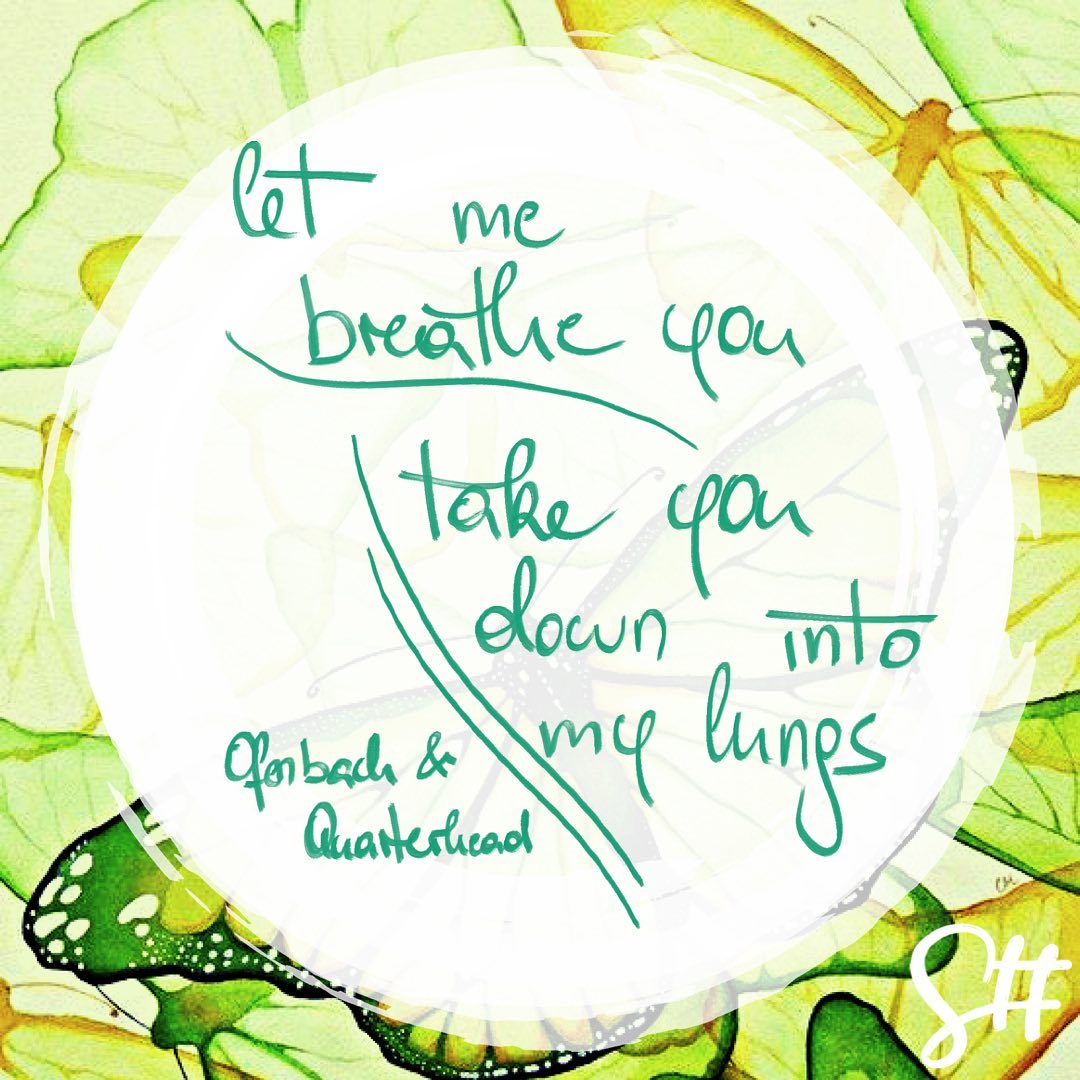 let me
breathe you
take you
down into
my lungs
Ofenbach &
Quarterhead
CM
SH